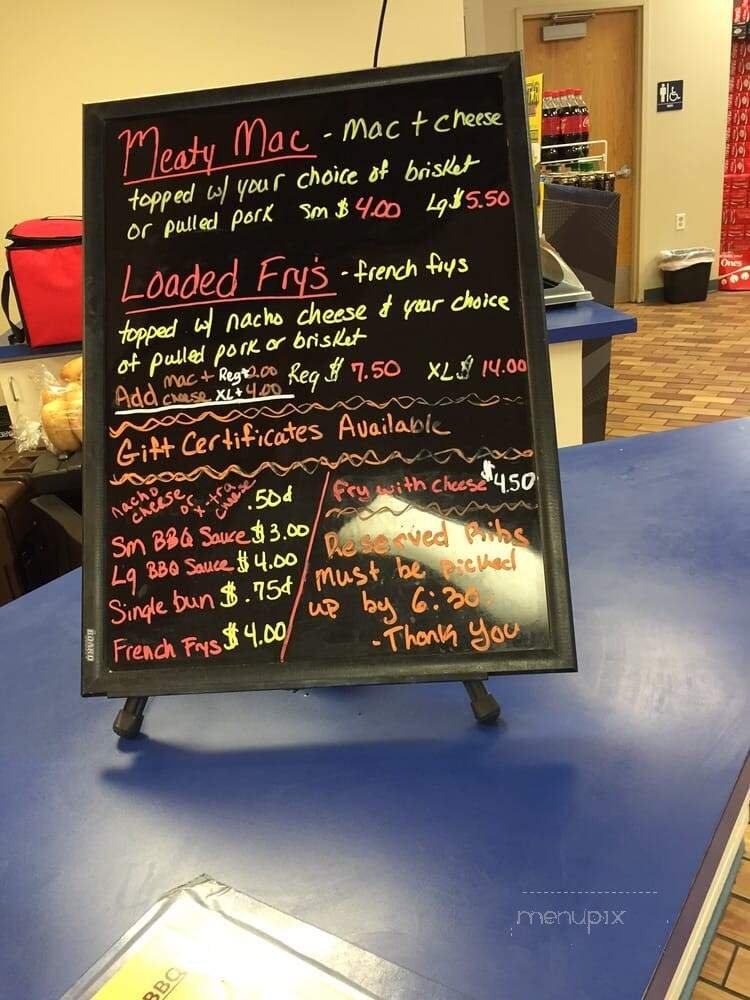 Meaty Mac - Mac + cheese
topped w/ your choice of brisket
or pulled pork Sm $ 4.00 Lg $ 5.50
Loaded Fry's - french frys
topped w/ nacho cheese & your choice
of pulled pork or brisket
Add mac + Reg+2.00
cheese XL+ 4.00
Reg $ 7.50 XL $ 14.00
Gift Certificates Available
nacho
cheese or x-tra
cheese .50¢
Sm BBQ Sauce $3.00
Lg BBQ Sauce $ 4.00
Single bun $ .75¢
French Frys $ 4.00
fry with cheese $4.50
Reserved Ribs
Must be picked
up by 6:30.
- Thank You
BOARD
Ones
BBQ
menupix